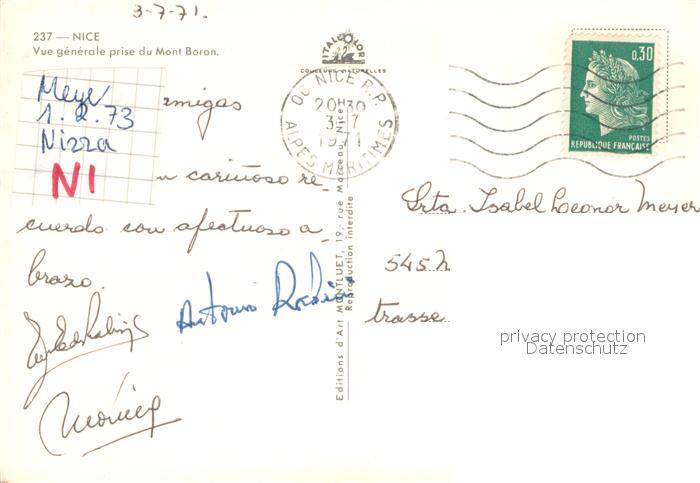 3-7-71.
237 — NICE
Vue générale prise du Mont Boron.
ITALCOLOR
COULEURS NATURELLES
06 NICE R.P.
20H30
3-7
1971
ALPES MARITIMES
0,30
POSTES
REPUBLIQUE FRANÇAISE
Meyer
1.2.73
Nizza
NI
amigas
cariñoso re-
cuerdo con afectuoso a-
brazo.
Antonio
Mónica
Editions d'Art MONTLUET, 19, rue Marceau, Nice
Reproduction interdite
Srta. Isabel Leonor Meyer
545
trasse
privacy protection
Datenschutz